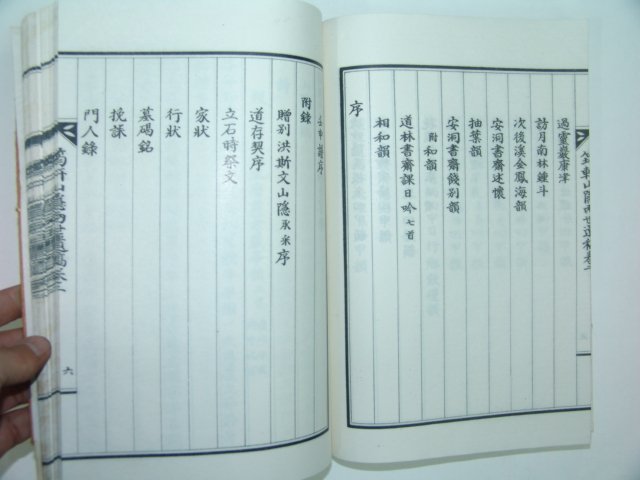 過靈巖康津
訪月南林鍾斗
次後溪金鳳海韻
安洞書齋述懷
抽葉韻
安洞書齋餞別韻
附和韻
道林書齋課日吟七首
相和韻
序
壬申譜序
附錄
贈別洪斯文山隱承采序
道存契序
立石時祭文
家狀
行狀
墓碣銘
挽誄
門人錄
六